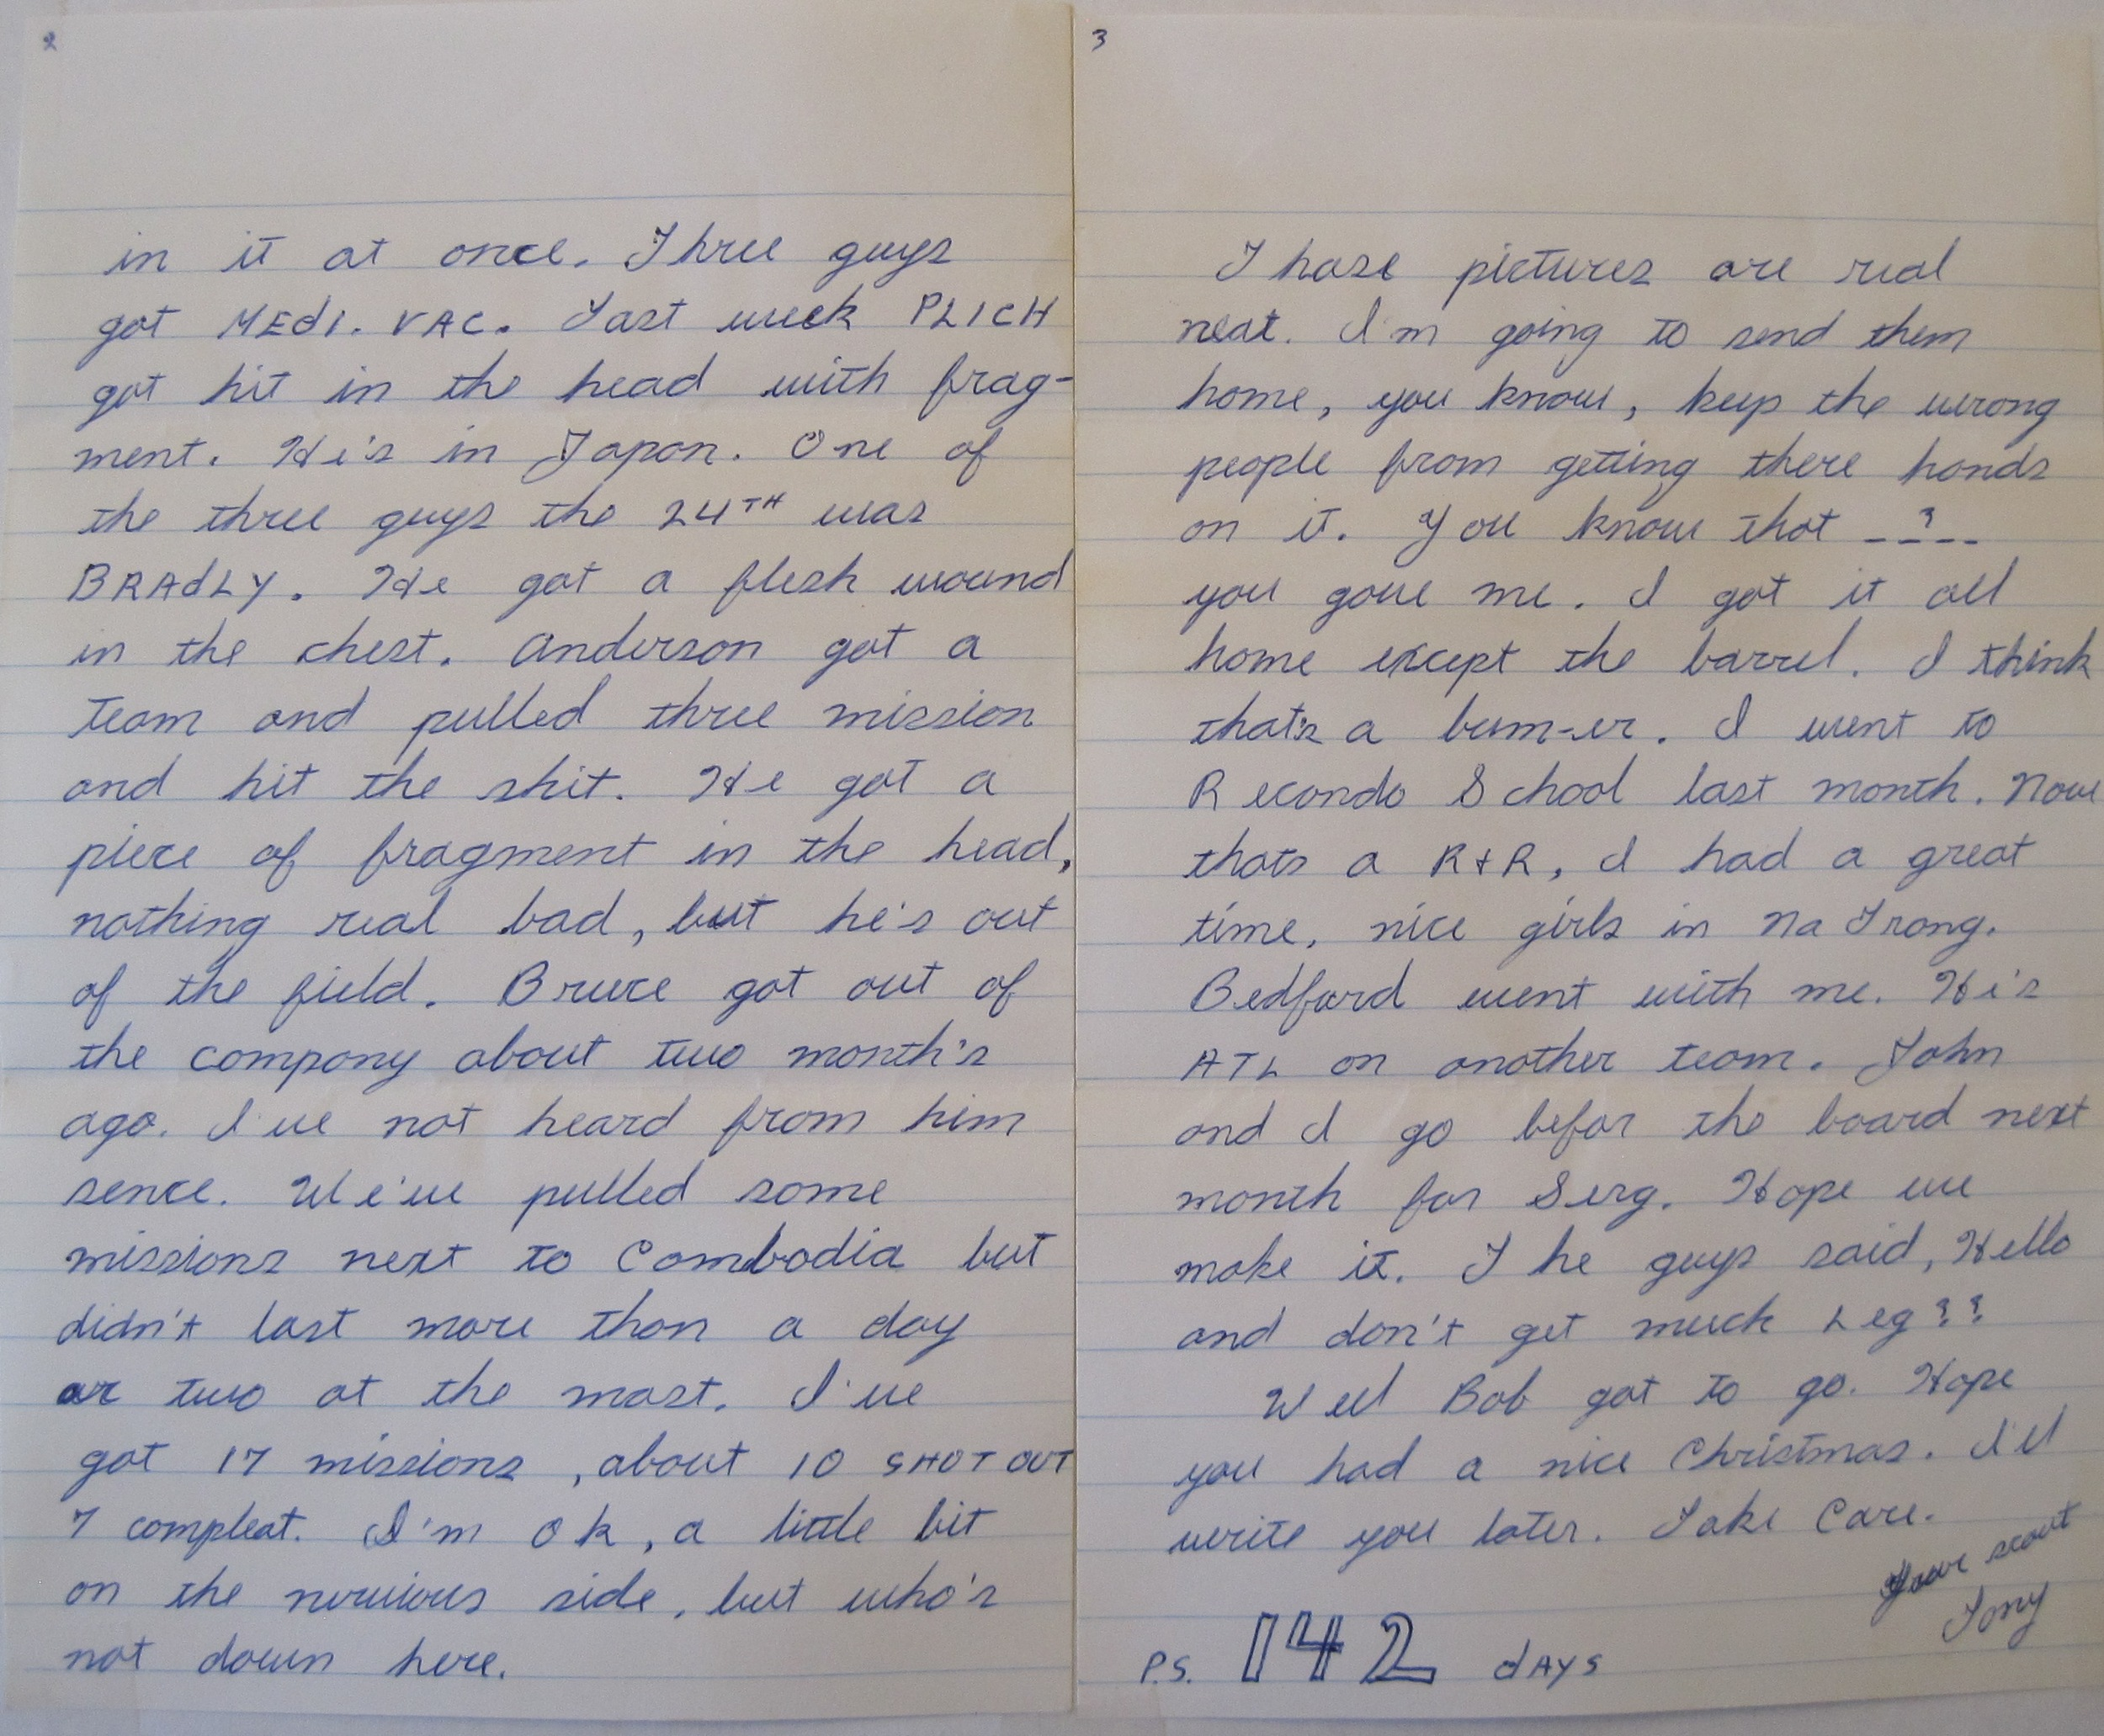 2
in it at once. Three guys
got MEdI. VAC. Last week PLICH
got hit in the head with frag-
ment. He's in Japan. One of
the three guys the 24TH was
BRAdLY. He got a flesh wound
in the chest. Anderson got a
team and pulled three mission
and hit the shit. He got a
piece of fragment in the head,
nothing real bad, but he's out
of the field. Bruce got out of
the company about two month's
ago. I've not heard from him
sence. We've pulled some
missions next to Combodia but
didn't last more than a day
or two at the most. I've
got 17 missions, about 10 SHOT OUT
7 compleat. I'm ok, a little bit
on the nervious side, but who's
not down here.
3
Those pictures are real
neat. I'm going to send them
home, you know, keep the wrong
people from getting there hands
on it. You know that _ _?_ _
you gave me. I got it all
home except the barrel. I think
that's a bum-er. I went to
Recondo School last month. Now
thats a R+R, I had a great
time, nice girls in Na Trang.
Bedford went with me. He's
ATL on another team. John
and I go befor the board next
month for Serg. Hope we
make it. The guys said, Hello
and don't get much Leg??
Well Bob got to go. Hope
you had a nice Christmas. I'll
write you later. Take Care.
Your scout
Tony
P.S. 142 dAYS